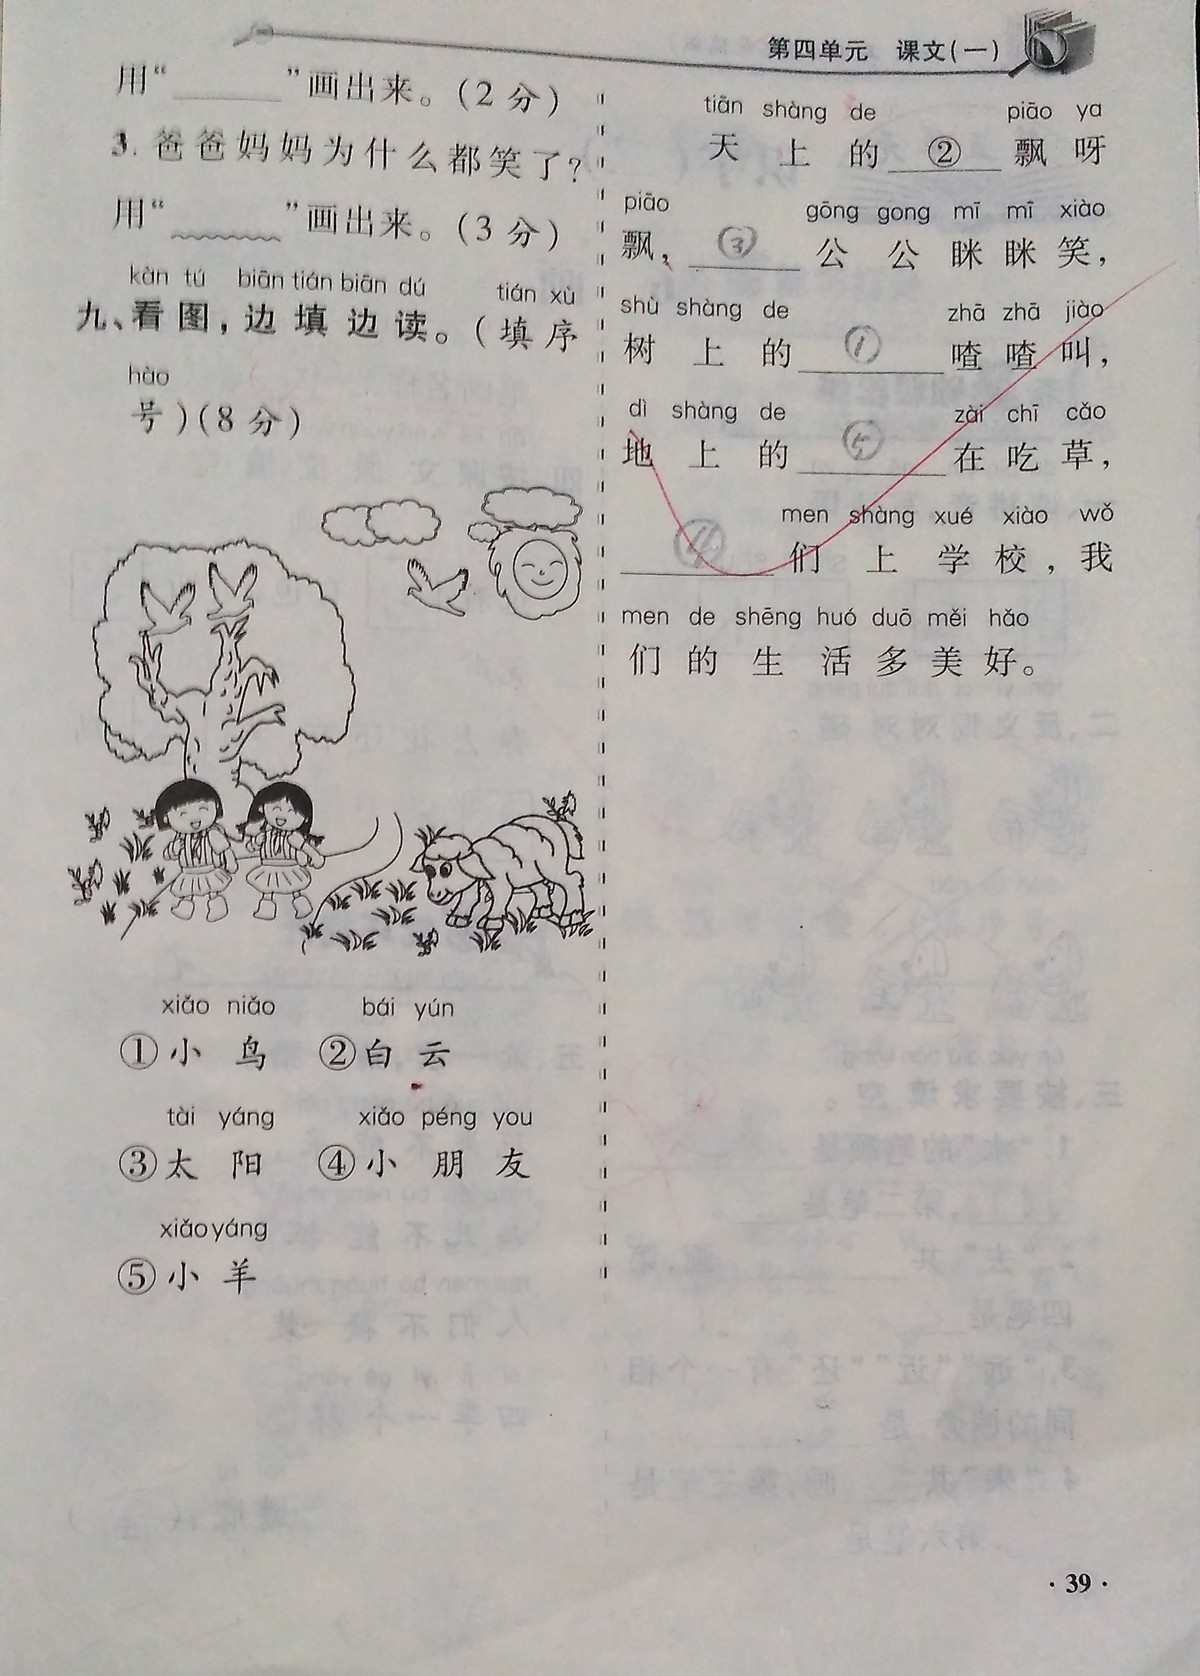 第四单元 课文(一)
用“______”画出来。(2分)
3. 爸爸妈妈为什么都笑了?
用“﹏﹏﹏”画出来。(3分)
kàn tú biān tián biān dú tián xù
九、看图,边填边读。(填序
hào
号)(8分)
xiǎo niǎo bái yún
①小鸟 ②白云
tài yáng xiǎo péng you
③太阳 ④小朋友
xiǎo yáng
⑤小羊
tiān shàng de piāo ya
天上的②飘呀
piāo gōng gong mī mī xiào
飘,③公公眯眯笑,
shù shàng de zhā zhā jiào
树上的①喳喳叫,
dì shàng de zài chī cǎo
地上的⑤在吃草,
men shàng xué xiào wǒ
④们上学校,我
men de shēng huó duō měi hǎo
们的生活多美好。
·39·